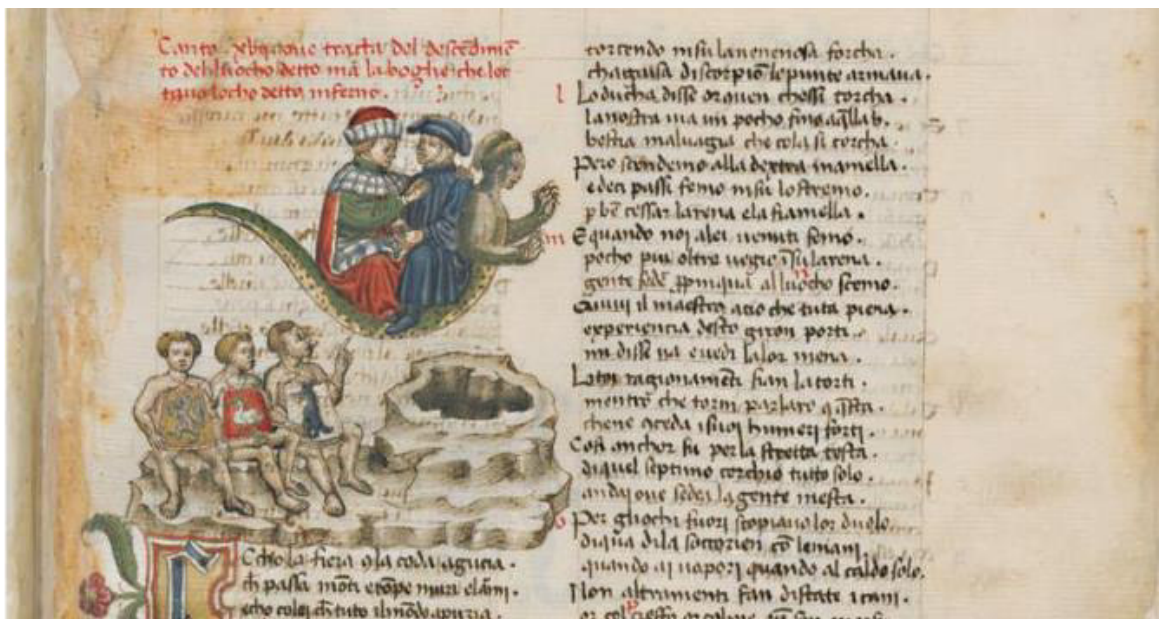 Canto xbij oue tracta del descedime
to del luocho detto ma la boglie che lor
locho detto inferno.
E
Ccho la fiera 9la coda agucia.
ch passa monti erope muri elarmi.
echo colei ch tuto il modo apuzia.
torcendo insu la uenenosa forcha.
chaguisa discorpio le punte armaua.
l Lo ducha disse or quen chossi torcha.
la nostra uia un pocho fino aqlla b.
bestia maluagia che cola si corcha.
Pero scendemo alla dextra mamella.
edeci passi femo insu lo stremo.
p be cessar larena ela fiamella.
m E quando noi alei uenuti semo.
pocho piu oltre uegio isu larena.
gente seder ppinqua al luocho scemo.
Quiui il maestro acio che tuta piena.
experiencia desto giron porti.
mi disse ua euedi la lor mena.
Li toi ragionamenti sian la corti.
mentre che torni parlaro 9 qsta.
chene 9ceda i suoi humeri forti.
Cosi anchor su per la stretta testa.
di quel septimo cerchio tutto solo.
andai oue sedea la gente mesta.
p Per gliochi fuori scopiaua lor duolo.
di qua di la soccorrien co le mani.
quando ai uapori quando al caldo solo.
Non altramenti fan distate i cani.